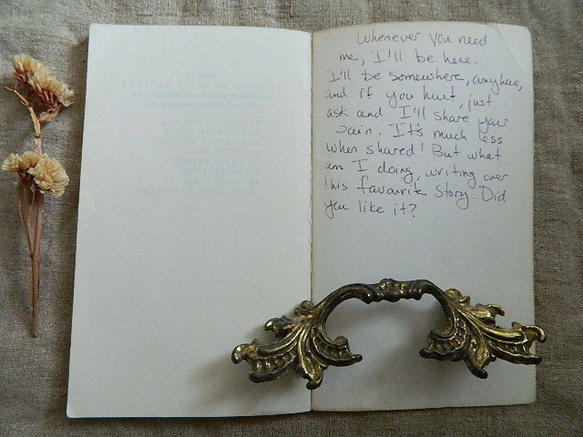 Whenever you need
me, I'll be here.
I'll be somewhere, anywhere,
and if you hurt, just
ask and I'll share your
pain. It's much less
when shared! But what
am I doing, writing over
this favourite story. Did
you like it?